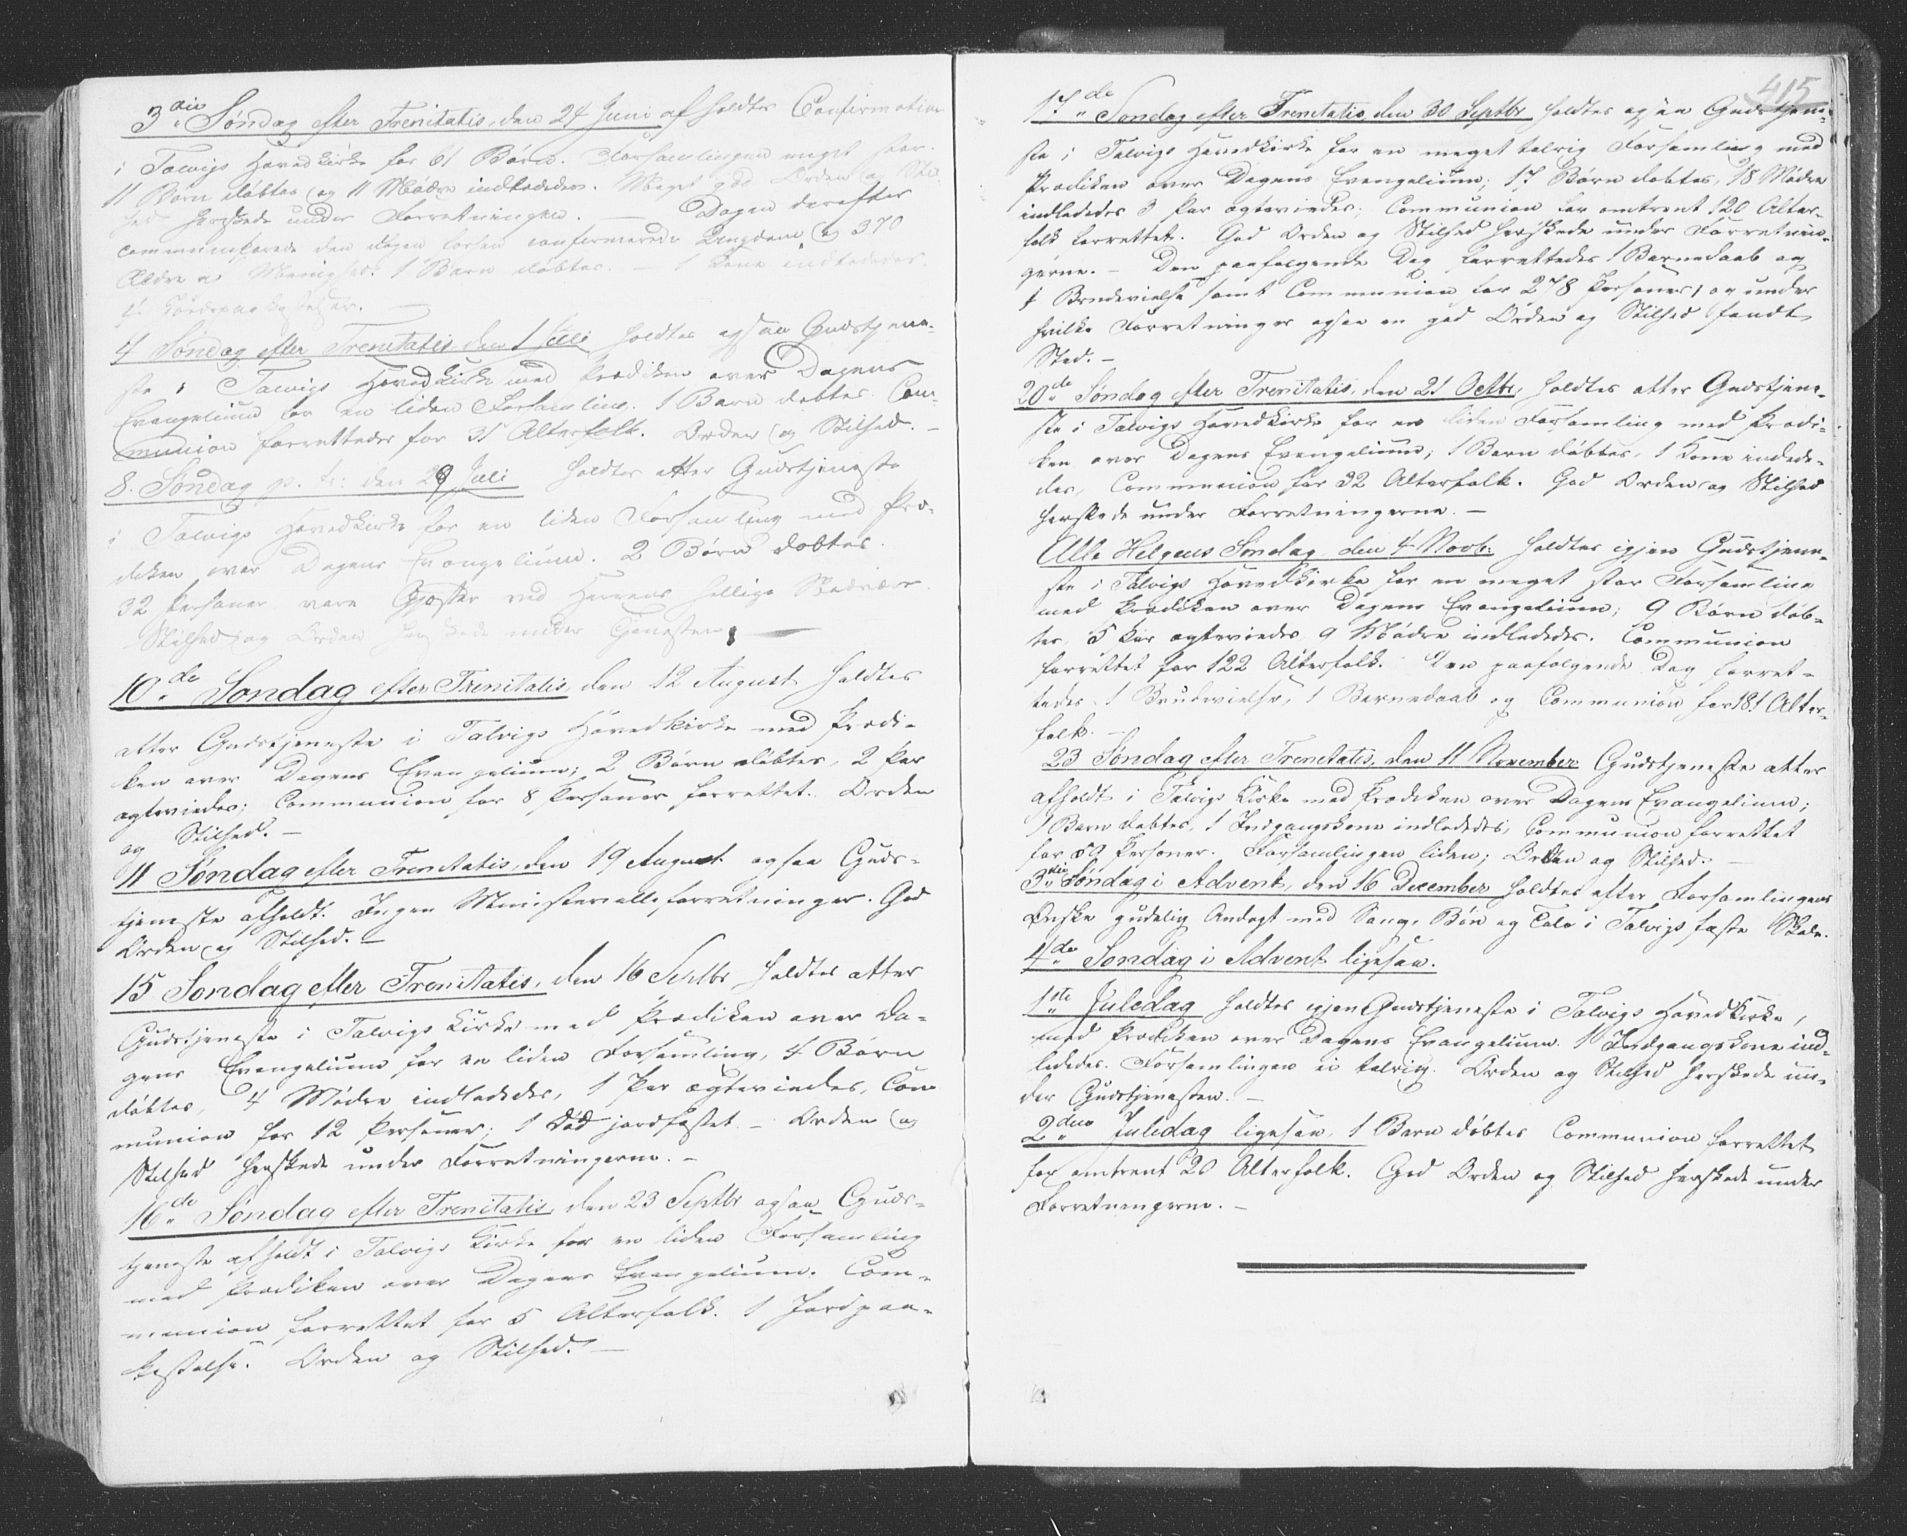 3die Søndag efter Trenitatis, den 24 Juni afholdtes Confirmation
i Talvigs Hovedkirke for 61 Børn. Forsamlingen meget stor.
11 Børn døbtes og 11 Mødre indlededes. Meget god Orden og Stil-
hed herskede under Forretningen. — Dagen derefter
communicerede den Dagen forhen confirmerede Ungdom og 370
Ældre a Menighed. 1 Barn døbtes. — 1 Kone indlededes.
4 Jordpaakastelser.
4 Søndag efter Trenitatis den 1 Juli holdtes ogsaa Gudstjene-
ste i Talvigs Hovedkirke med Prædiken over Dagens
Evangelium for en liden Forsamling. 1 Barn døbtes. Com-
munion forrettedes for 31 Alterfolk. Orden og Stilhed. —
8. Søndag p. tr: den 29 Juli holdtes atter Gudstjeneste
i Talvigs Hovedkirke for en liden Forsamling med Præ-
diken over Dagens Evangelium. 2 Børn døbtes.
32 Personer vare Gjæster ved Herrens hellige Nadvere.
Stilhed og Orden herskede under Tjenesten. —
10de Søndag efter Trenitatis den 12 August holdtes
atter Gudstjeneste i Talvigs Hovedkirke med Prædi-
ken over Dagens Evangelium; 2 Børn døbtes, 2 Par
ægteviedes; Communion for 8 Personer forrettet. Orden
og Stilhed. —
11 Søndag efter Trenitatis, den 19 August ogsaa Guds-
tjeneste afholdt. Ingen Ministerialforretninger. God
Orden og Stilhed. —
15 Søndag efter Trenitatis, den 16 Septbr holdtes atter
Gudstjeneste i Talvigs Kirke med Prædiken over Da-
gens Evangelium for en liden Forsamling, 4 Børn
døbtes, 4 Mødre indlededes, 1 Par ægteviedes, Com-
munion for 12 Personer; 1 Død jordfæstet — Orden og
Stilhed herskede under Forretningerne. —
16de Søndag efter Trenitatis, den 23 Septbr ogsaa Guds-
tjeneste afholdt i Talvigs Kirke for en liden Forsamling
med Prædiken over Dagens Evangelium. Com-
munion forrettet for 5 Alterfolk. 1 Jordpaa-
kastelse. Orden og Stilhed. —
415
17de Søndag efter Trenitatis, den 30 Septbr holdtes ogsaa Gudstjene-
ste i Talvigs Hovedkirke for en meget talrig Forsamling med
Prædiken over Dagens Evangelium; 17 Børn døbtes, 18 Mødre
indlededes 3 Par ægteviedes; Communion for omtrent 120 Alter-
folk forrettet. God Orden og Stilhed herskede under Forretnin-
gerne. — Den paafølgende Dag forrettedes 1 Barnedaab og
1 Brudevielse samt Communion for 278 Personer, og under
hvilke Forretninger ogsaa en god Orden og Stilhed fandt
Sted. —
20de Søndag efter Trenitatis, den 21 Octbr, holdtes atter Gudstjene-
ste i Talvigs Hovedkirke for en liden Forsamling med Prædi-
ken over Dagens Evangelium; 1 Barn døbtes, 1 Kone indlede-
des, Communion for 32 Alterfolk. God Orden og Stilhed
herskede under Forretningerne. —
Alle Helgens Søndag, den 4 Novb: holdtes igjen Gudstjene-
ste i Talvigs Hovedkirke for en meget stor Forsamling
med Prædiken over Dagens Evangelium; 9 Børn døb-
tes, 5 Par ægteviedes, 9 Mødre indlededes. Communion
forrettet for 122 Alterfolk. Den paafølgende Dag forret-
tedes 1 Brudevielse, 1 Barnedaab og Communion for 181 Alter-
folk. —
23 Søndag efter Trenitatis, den 11 November Gudstjeneste atter
afholdt i Talvigs Kirke med Prædiken over Dagens Evangelium;
1 Barn døbtes, 1 Indgangskone indlededes, Communion forrettet
for 59 Personer. Forsamlingen liden; Orden og Stilhed. —
3die Søndag i Advent, den 16 December holdtes efter Forsamlingens
Ønske gudelig Andagt med Sang, Bøn og Tale i Talvigs faste Skole.
4de Søndag i Advent ligesaa.
1ste Juledag holdtes igjen Gudstjeneste i Talvigs Hovedkirke,
med Prædiken over Dagens Evangelium 1 Indgangskone ind-
lededes. Forsamlingen ei talrig. Orden og Stilhed herskede un-
der Gudstjenesten. —
2den Juledag ligesaa, 1 Barn døbtes Communion forrettet
for omtrent 20 Alterfolk. God Orden og Stilhed herskede under
Forretningerne. —